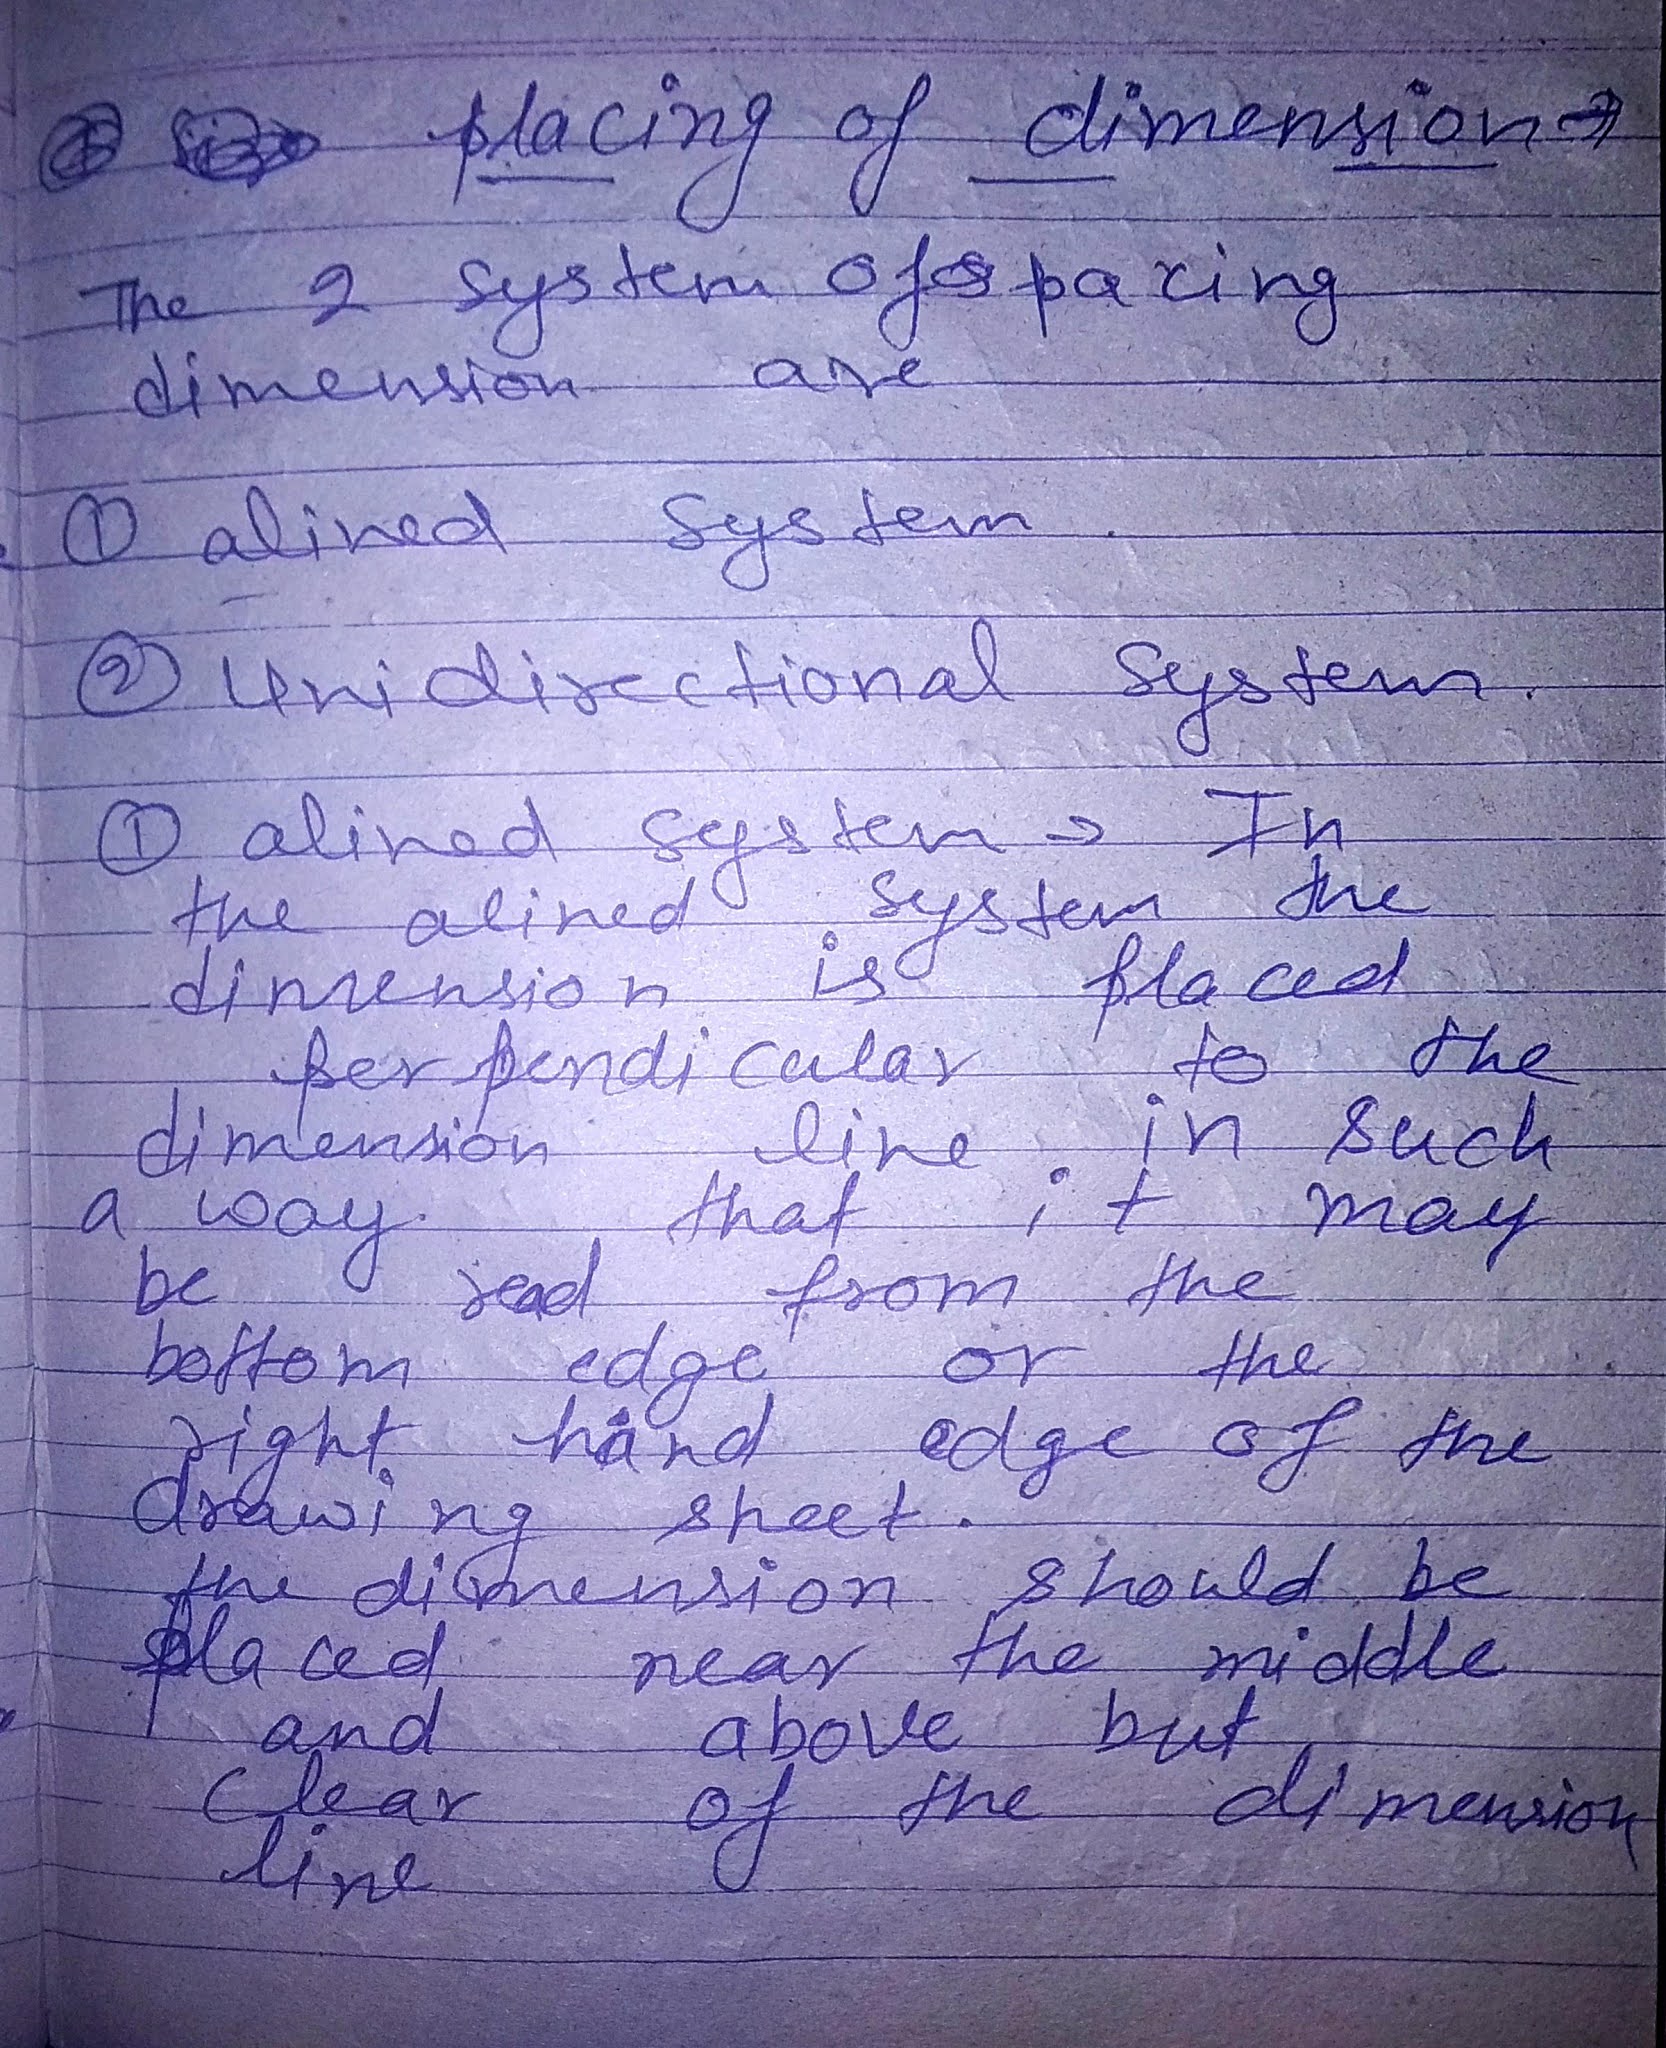 placing of dimension →
The 2 system of spacing
dimension are
① alined system.
② Unidirectional system.
① alined system → In
the alined system the
dimension is placed
perpendicular to the
dimension line. in such
a way. that it may
be read from the
bottom edge or the
right hand edge of the
drawing sheet.
the dimension should be
placed near the middle
and above but
clear of the dimension
line